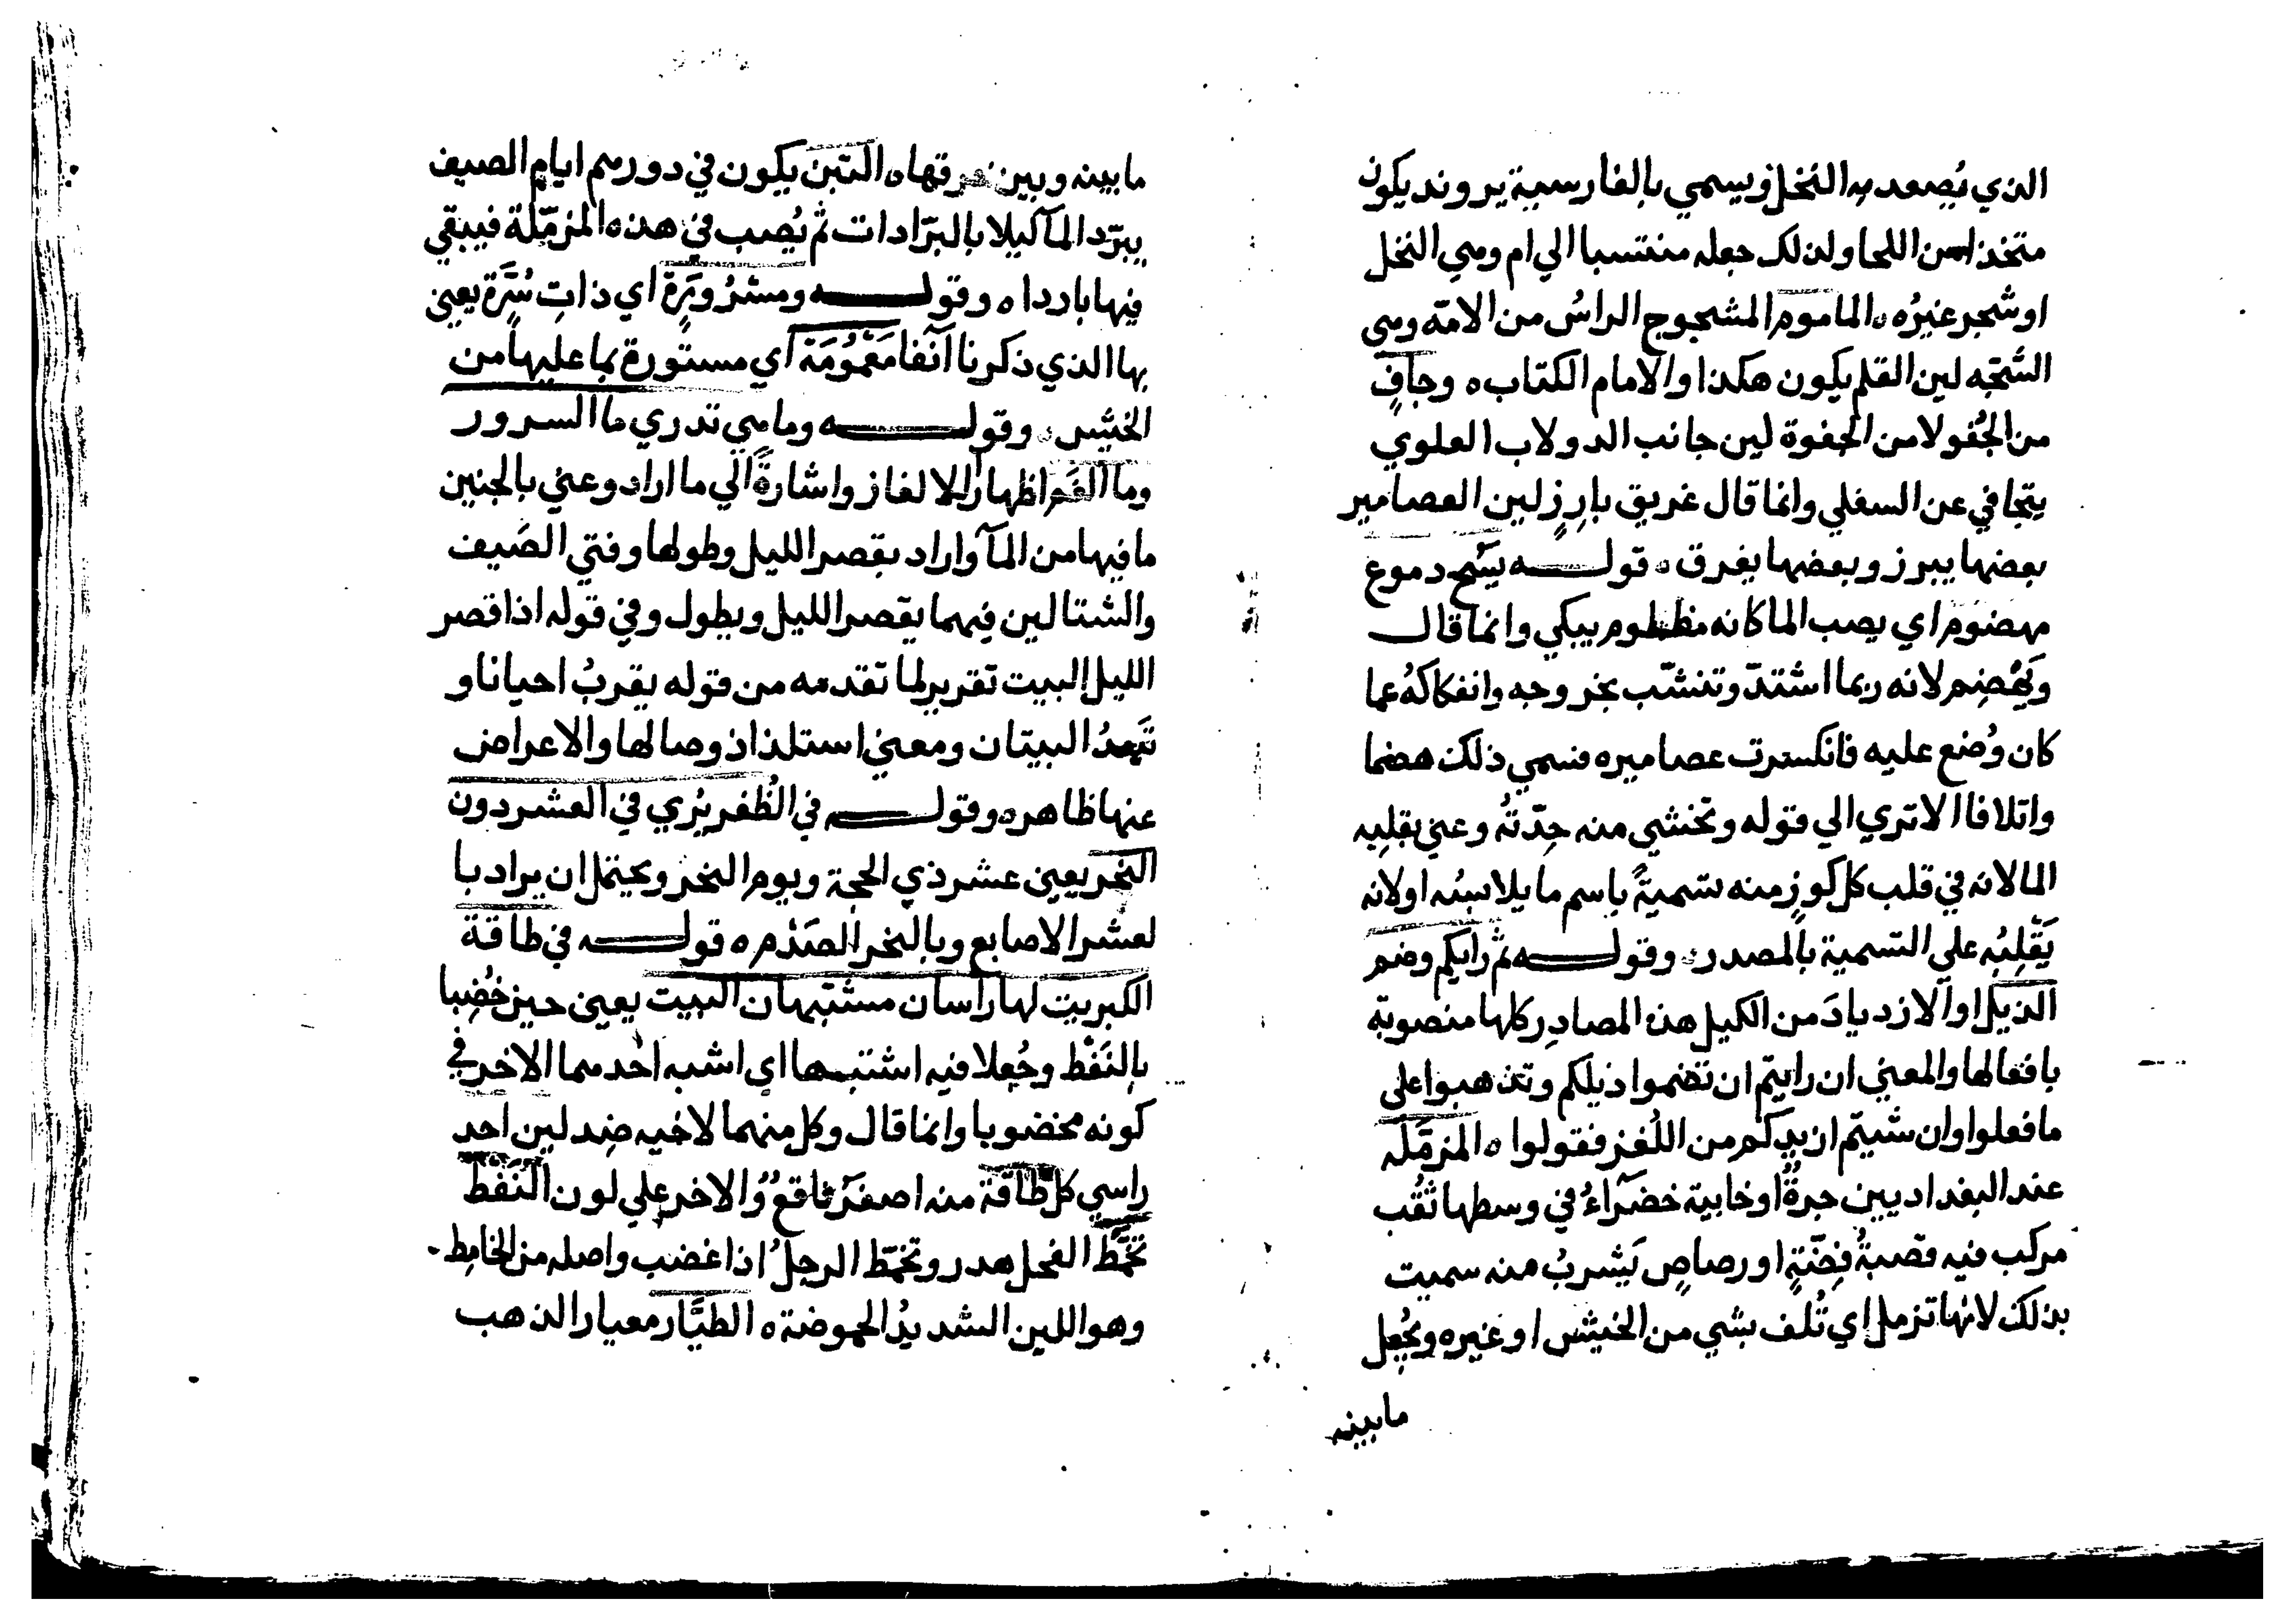 الذي يُصعد به النخل ويسمي بالفارسية پروند يكون
متخذا من اللحا ولذلك جعله منتسبا الي ام وهي النخل
او شجر غيرُه ه المأموم المشجوج الراسُ من الامّه وهي
الشجّه لين القلم يكون هكذا والامام الكتاب ه وجافٍ
من الجُفو لا من الجفوة لين جانب الدولاب العلوي
يتجافي عن السفلي وانما قال غريق بارِزٍ لين العصامير
بعضها يبرز وبعضها يغرق ه قولـــه يسُح دموع
مهضوم اي يصب الما كانه مظلوم يبكي وانما قال
وَيَهْضِم لانه ربما اشتدّ وتنشّب بخروجه وانفكاكهُ عما
كان وُضع عليه فانكسرت عصاميره فسمي ذلك هضما
واتلافا الا تري الي قوله وتخشي منه حِدّتهُ وعني بقلبِه
الما لانه في قلب كل كوزٍ منه تسميةً باسم ما يلابسُه او لانه
يَقْلِبُه علي التسمية بالمصدر ه وقولـــه ثم رأيكم وضم
الذيل او الازديادَ من الكيل هذه المصادِر كلها منصوبة
بافعالها والمعني ان رايتم ان تضموا ذيلكم وتذهبوا علي
ما فعلوا وان شيتم ان يدكم من اللُغز فقولوا ه المزمّله
عند البغداديين جرةٌ او خابية خضراءُ في وسطها ثُقب
مركب فيه قصبةُ فِضّةٍ او رصاصٍ يَشربُ منه سميت
بذلك لانها تزمل اي تُلف بشي من الخيش او غيره ويُجعل
مابينه
مابينه وبين خرقها ه التبن يكون في دورهم ايام الصيف
يبرّد المآ ليلا بالبرّادات ثم يُصب في هذه المزمّلة فيبقي
فيها باردا ه وقولـــه ومسْرُورَةٍ اي ذاتِ سُرَّةٍ يعني
بها الذي ذكرنا آنفا مَغْمُومَة اي مستورة بما عليها من
الخيش ه وقولـــه وما هي تدري ما السرور
وما الغَم اظهاراً للالغاز واشارةً الي ما اراد وعني بالجنين
ما فيها من المآ واراد بقصر الليل وطولها وقتي الصَيف
والشتا لين فيهما يقصر الليل ويطول وفي قوله اذا قصر
الليل البيت تقرير لما تقدمه من قوله يقربُ احيانا و
تَبعدُ البيتان ومعني استلذاذ وصالها والاعراض
عنها ظاهر ه وقولـــه في الظُفر يُري في العشر دون
النحر يعني عشر ذي الحجة ويوم النحر ويحتمل ان يراد با
لعشر الاصابع وبالنحر الصَدْر ه قولـــه في طاقة
الكبريت لها راسان مشتبهان البيت يعني حين خُضِبا
بالنَفْط وجُعِلا فيه اشتبها اي اشبه احدهما الاخر في
كونه مخضوبا وانما قال وكل منهما لاخيه ضِد لين احد
راسي كل طاقة منه اصفر فاقعٌ والاخر علي لون النَفْط
تخمَّط الفحل هدر وتخمّط الرجلُ اذا غضب واصله من الخامِط
وهو اللبن الشديدُ الحموضة ه الطيَّار معيار الذهب